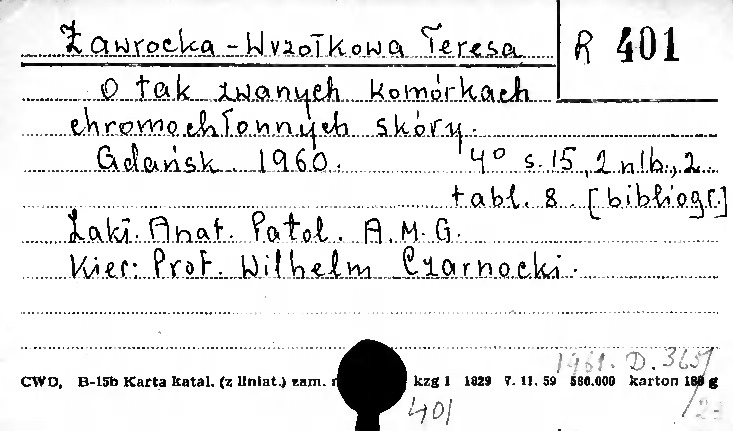 Zawrocka-Wrzołkowa Teresa R 401
O tak zwanych komórkach
chromochłonnych skóry.
Gdańsk 1960. 4° s. 15, 2 nlb., 2
tabl. 8 [bibliogr.]
Zakł. Anat. Patol. A.M.G.
Kier: Prof. Wilhelm Czarnocki.
1961. D. 365/
CWD, B-15b Karta katal. (z liniat.) zam. kzg 1 1829 7. 11. 59 580.000 karton 180 g
401